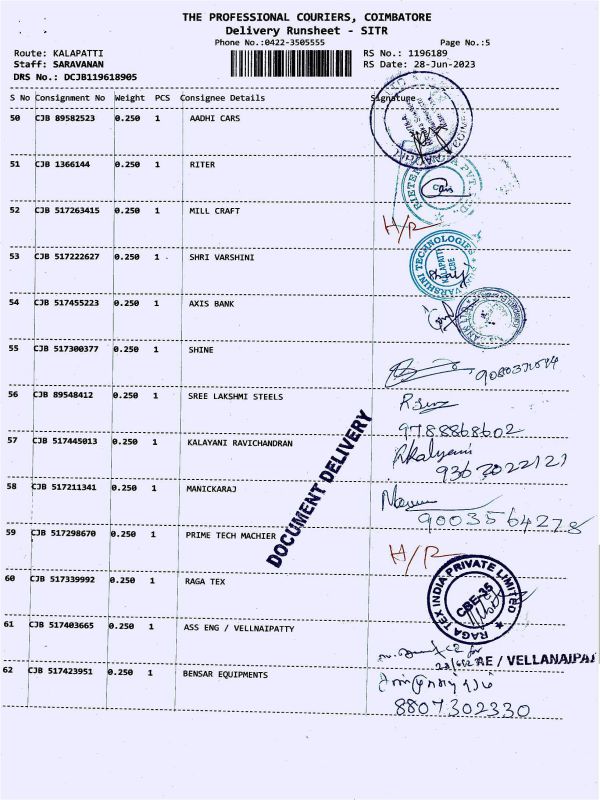 THE PROFESSIONAL COURIERS, COIMBATORE
Delivery Runsheet - SITR
Phone No.:0422-3505555 Page No.:5
Route: KALAPATTI RS No.: 1196189
Staff: SARAVANAN RS Date: 28-Jun-2023
DRS No.: DCJB119618905
S No Consignment No Weight PCS Consignee Details Signature
50 CJB 89582523 0.250 1 AADHI CARS
51 CJB 1366144 0.250 1 RITER
52 CJB 517263415 0.250 1 MILL CRAFT H/R
53 CJB 517222627 0.250 1 SHRI VARSHINI
VARSHINI TECHNOLOGIES
KALAPATTI
CBE
54 CJB 517455223 0.250 1 AXIS BANK
55 CJB 517300377 0.250 1 SHINE
56 CJB 89548412 0.250 1 SREE LAKSHMI STEELS
9788868602
57 CJB 517445013 0.250 1 KALAYANI RAVICHANDRAN Rkalyani
9367022121
58 CJB 517211341 0.250 1 MANICKARAJ
9003564278
DOCUMENT DELIVERY
59 CJB 517298670 0.250 1 PRIME TECH MACHIER H/R
60 CJB 517339992 0.250 1 RAGA TEX
RAGA TEX INDIA PRIVATE LIMITED
CBE-35
61 CJB 517403665 0.250 1 ASS ENG / VELLNAIPATTY
AE / VELLANAIPA
62 CJB 517423951 0.250 1 BENSAR EQUIPMENTS
8807302330